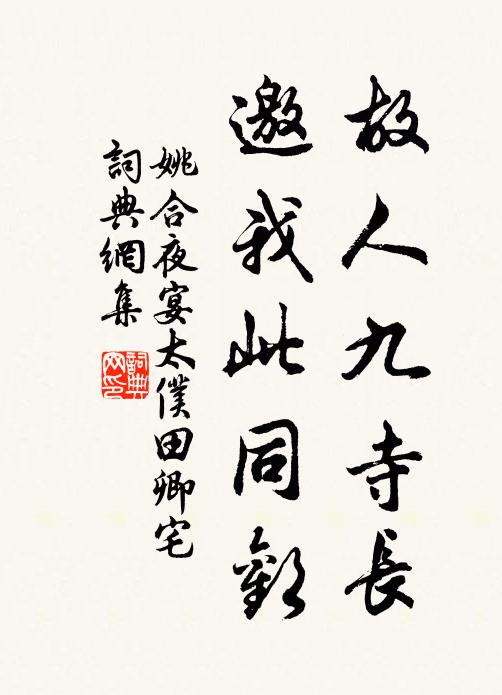 故人九寺長
邀我此同歡
姚合夜宴太僕田卿宅
詞典網集
詞典
网印